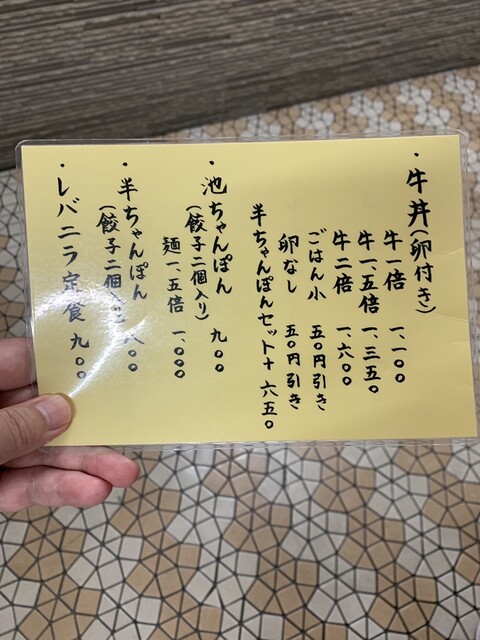 ・牛丼（卵付き）
牛一倍 一、一〇〇
牛一、五倍 一、三五〇
牛二倍 一、六〇〇
ごはん小 五〇円引き
卵なし 五〇円引き
半ちゃんぽんセット＋六五〇
・池ちゃんぽん 九〇〇
（餃子二個入り）
麺一、五倍 一、〇〇〇
・半ちゃんぽん 八〇〇
（餃子二個入り）
・レバニラ定食 九〇〇